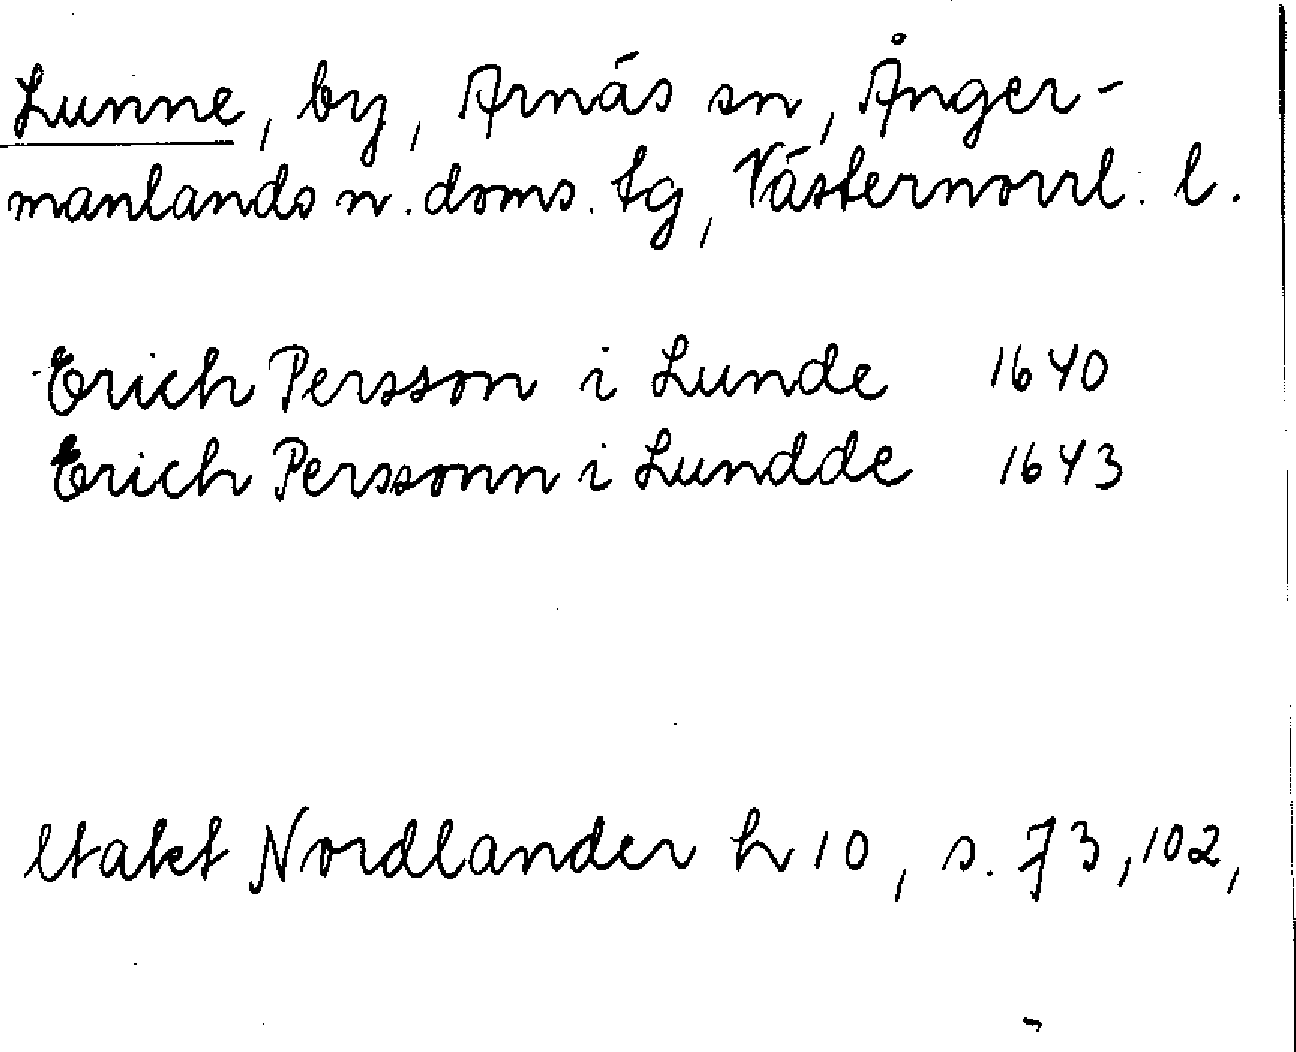 Lunne, by, Arnäs sn, Ånger-
manlands n. doms. tg, Västernorrl. l.
Erich Persson i Lunde 1640
Erich Perssonn i Lundde 1643
Utakt Nordlander h 10, s. 73, 102,